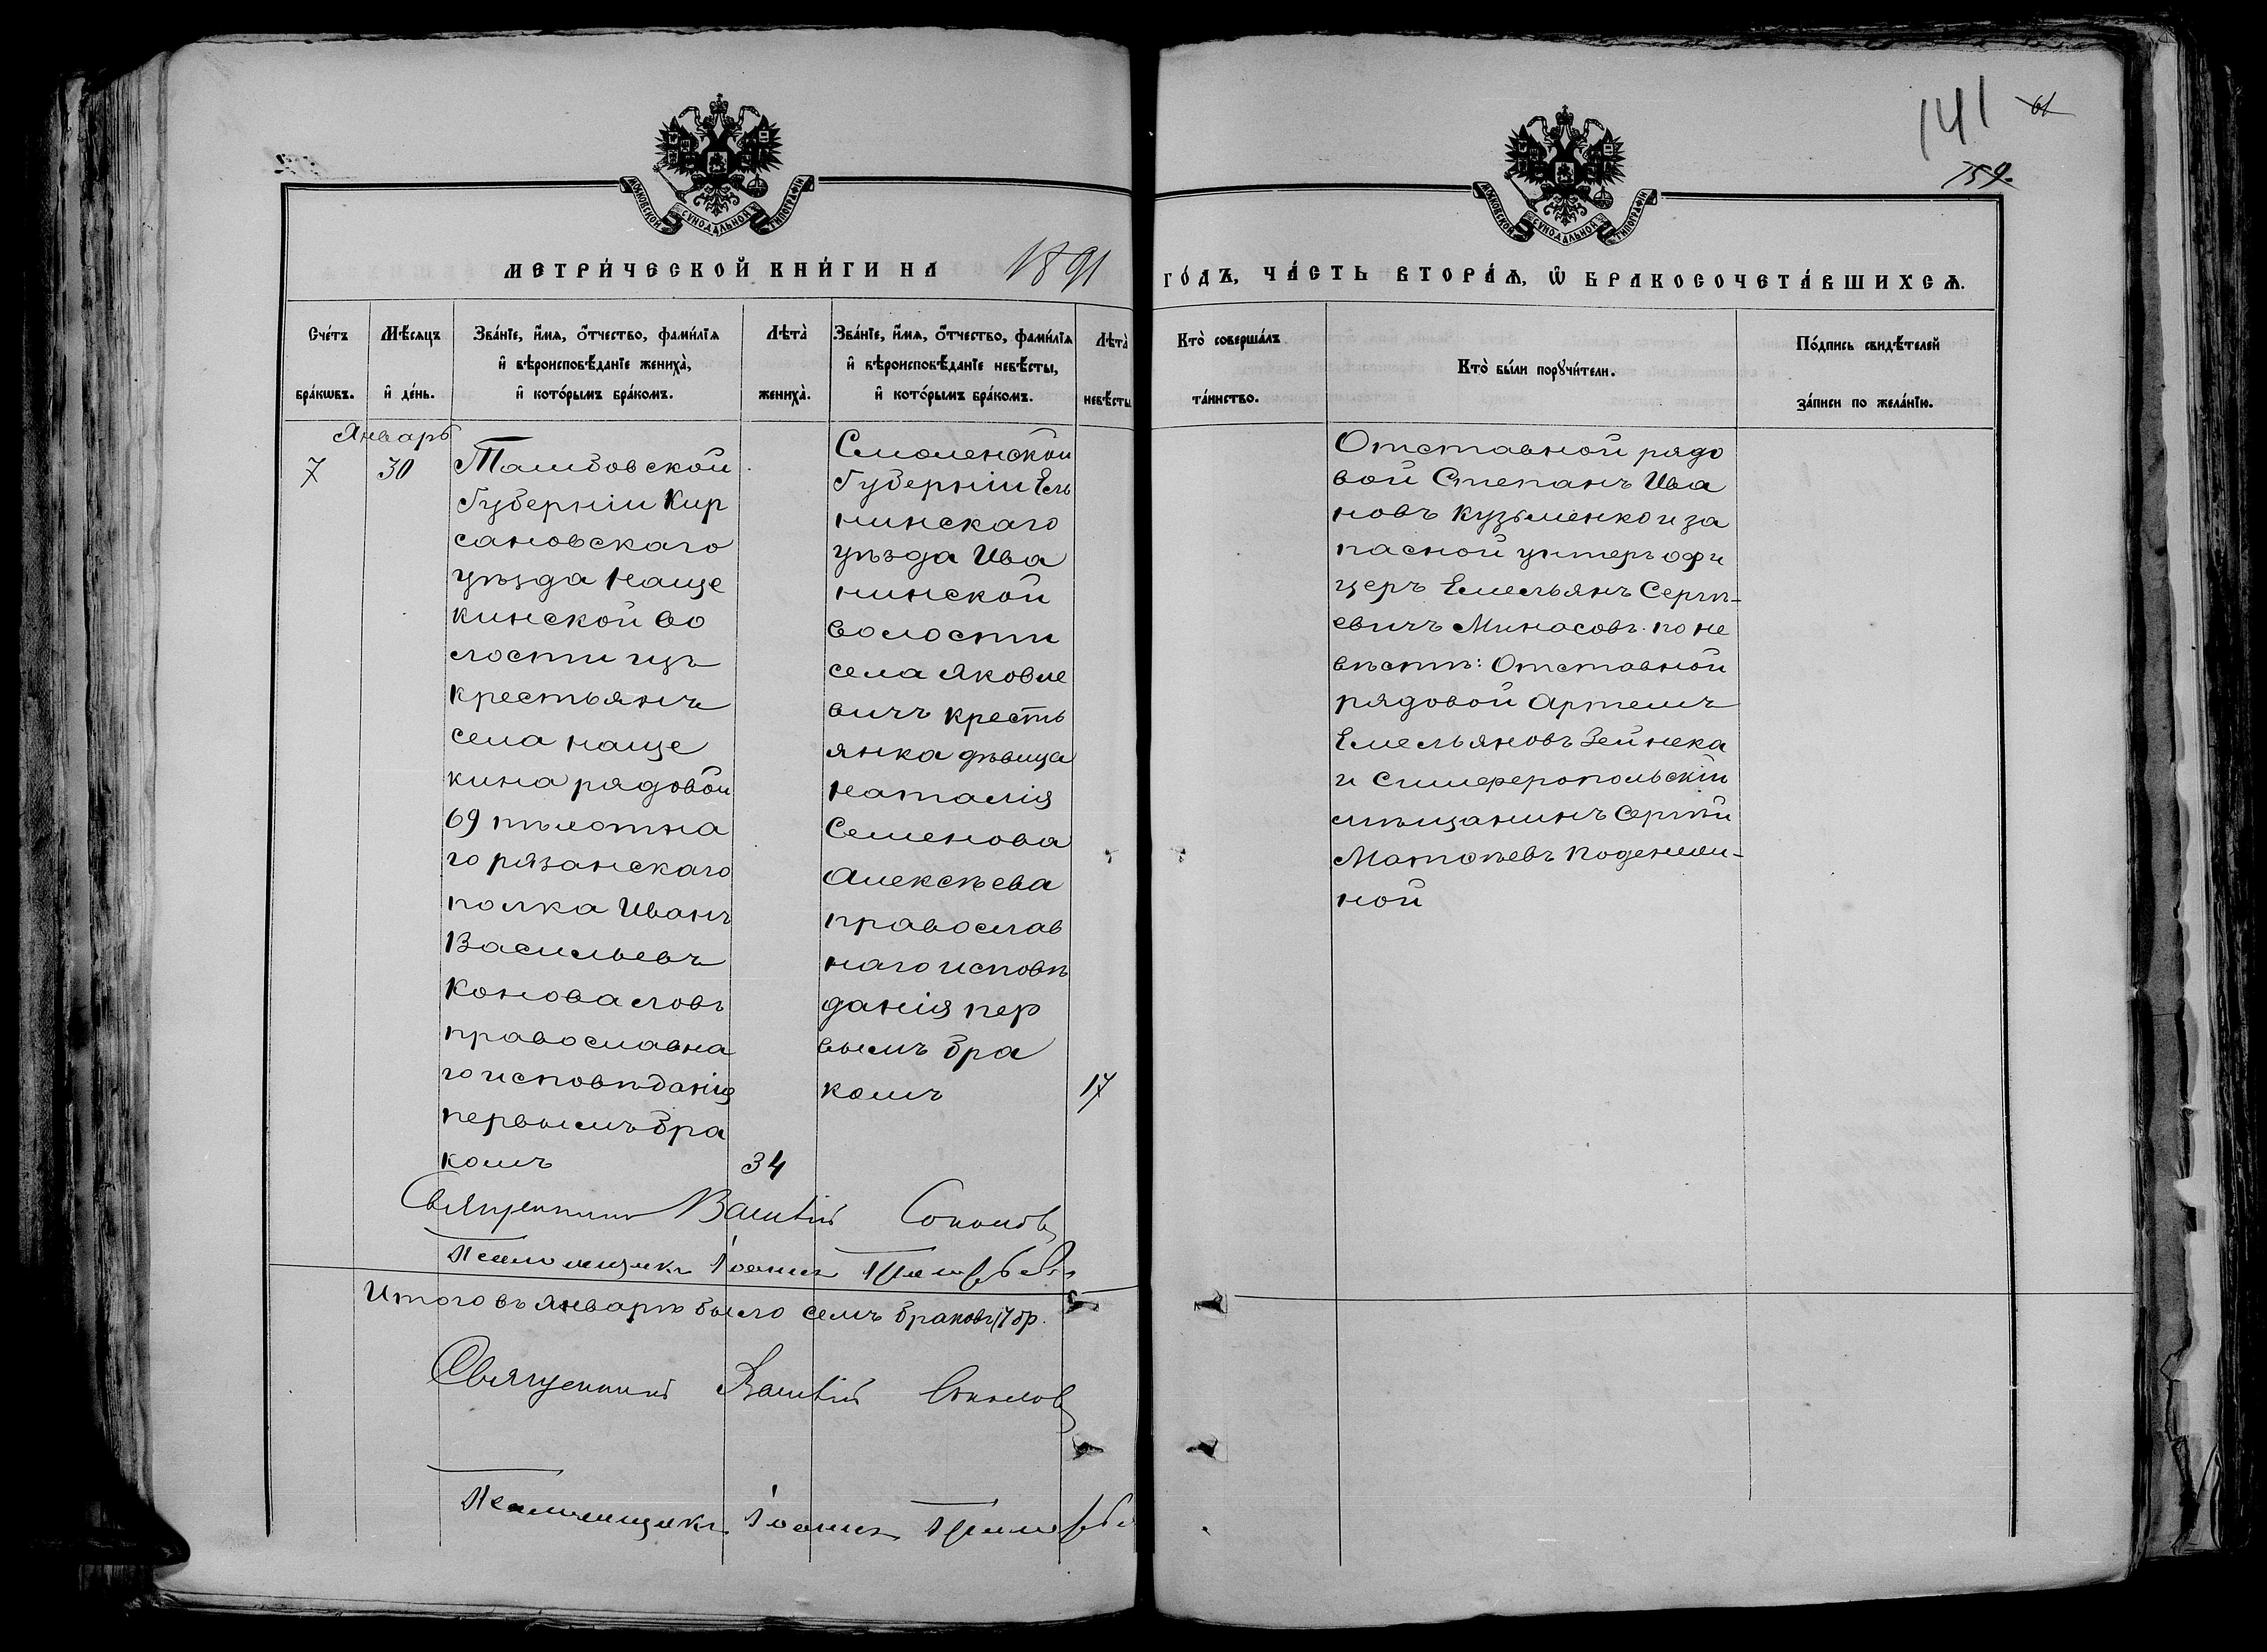 141
61
159.
МОСКОВСКОЙ СУНОДАЛЬНОЙ ТИПОГРАФІИ
МОСКОВСКОЙ СУНОДАЛЬНОЙ ТИПОГРАФІИ
МЕТРИ́ЧЕСКОЙ КНИ́ГИ НА 1891
ГО́ДЪ, ЧА́СТЬ ВТОРА́Ѧ, Ѽ БРАКОСОЧЕТА́ВШИХСѦ.
Сче́тъ
бра́кѡвъ.
Мѣ́сяцъ
и҆ де́нь.
Зва́нїе, и҆́мѧ, ѻ҆́тчество, фами́лїѧ
и҆ вѣроисповѣ́данїе жениха̀,
и҆ кото́рымъ бра́комъ.
Лѣта̀
жениха̀.
Зва́нїе, и҆́мѧ, ѻ҆́тчество, фами́лїѧ
и҆ вѣроисповѣ́данїе невѣ́сты,
и҆ кото́рымъ бра́комъ.
Лѣта̀
невѣ́сты
Кто̀ соверша́лъ
та́инство.
Кто̀ бы́ли порꙋчи́тели.
По́дпись свидѣ́телей
за́писи по жела́нїю.
Январь
7
30
Тамбовской
Губерніи Кир
сановскаго
уѣзда Наще
кинской во
лости изъ
крестьянъ
села Наще
кина рядовой
69 пѣхотна
го рязанскаго
полка Иванъ
Васильевъ
Коноваловъ
православна
го исповѣданія
первымъ бра
комъ
34
Смоленской
Губерніи Ель
нинскаго
уѣзда Ива
нинской
волости
села Яковле
вичъ кресть
янка дѣвица
Наталія
Семенова
Алексѣева
православ
наго исповѣ
данія пер
вымъ бра
комъ
17
Отставной рядо
вой Степанъ Ива
новъ Кузьменко и за
пасной унтеръ офи
церъ Емельянъ Сергѣ-
евичъ Минасовъ. по не
вѣстѣ: Отставной
рядовой Артемъ
Емельяновъ Зейнека
и Симферопольскій
мѣщанинъ Сергѣй
Матѳѣевъ Поденши-
ной
Священникъ Василій Соколовъ
Псаломщикъ Іоаннъ
Итого въ январѣ было семь браковъ (7 бр.
Священникъ Василій Соколовъ
Псаломщикъ Іоаннъ